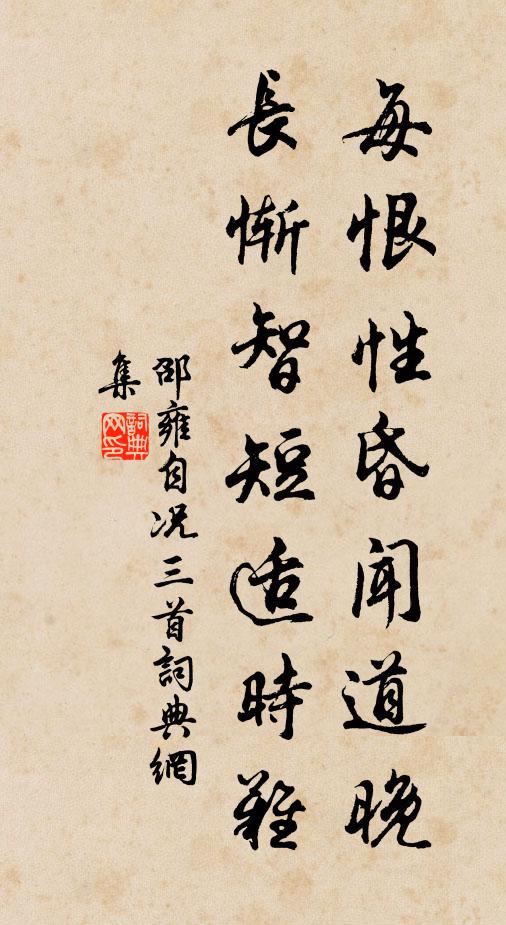 每恨性昏聞道晚
長慚智短適時難
邵雍自况三首詞典網
集
詞典
网印